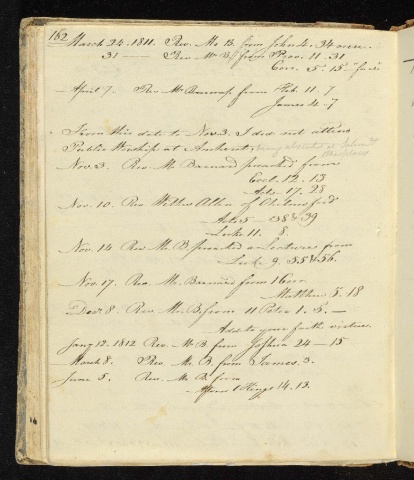 162
March 24. 1811. Rev. Mr B. from John 4. 34
31 — Rev. Mr B. from Prov. 11. 31
Cor. 5. 15
April 7. Rev. Mr from Heb. 11. 7
James 4. 7
From this date to Nov. 3. I did not attend
Public Worship at Amherst, being absent at
Nov. 3. Rev. Mr Barnard preached from
Eccl. 12. 13
Acts. 17. 28
Nov. 10. Rev. Wilkes Allen of Chelmsford
Acts 5 - 38 & 39
Luke 11. 8.
Nov. 14 Rev Mr. B. preached a Lecture from
Luke 9. 55 & 56.
Nov. 17. Rev. Mr. Barnard from 1 Cor.
Matthew 5. 18
Decr 8. Rev. Mr. B. from 11 Peter 1. 5. —
Add to your faith virtue.
Jany 12. 1812 Rev. Mr B. from Joshua 24 — 15
March 8. Rev. Mr. B. from James. 3.
June 5. Rev. Mr. B. from
1 Kings 14. 13.